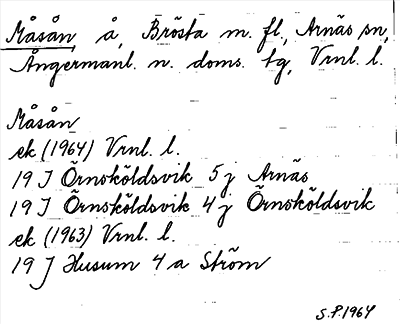 Måsån, å, Brösta m. fl., Arnäs sn,
Ångermanl. n. doms. tg, Vrnl. l.
Måsån
ek (1964) Vrnl. l.
19 J Örnsköldsvik 5 j Arnäs
19 J Örnsköldsvik 4 j Örnsköldsvik
ek (1963) Vrnl. l.
19 J Husum 4 a Ström
S.P. 1964